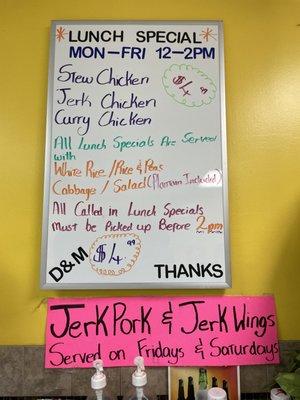 LUNCH SPECIAL
MON-FRI 12-2PM
Stew Chicken
$4
Jerk Chicken
Curry Chicken
All Lunch Specials Are Served
with
White Rice / Rice & Peas
Cabbage / Salad (Plantain Included)
All Called in Lunch Specials
Must be Picked up Before 2pm
$4.99
D&M
THANKS
Jerk Pork & Jerk Wings
Served on Fridays & Saturdays